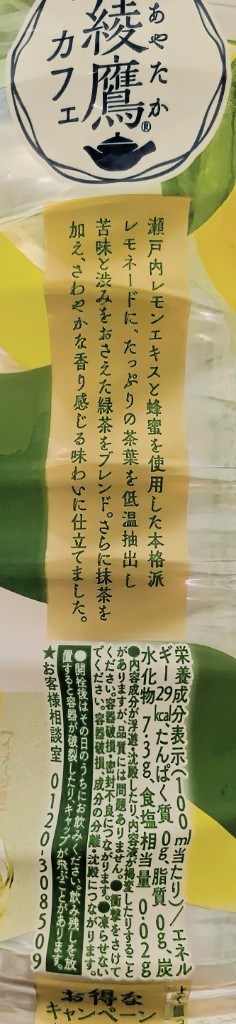 あやたか
綾鷹®
カフェ
瀬戸内レモンエキスと蜂蜜を使用した本格派
レモネードに、たっぷりの茶葉を低温抽出し
苦味と渋みをおさえた緑茶をブレンド。さらに抹茶を
加え、さわやかな香り感じる味わいに仕立てました。
栄養成分表示(100ml当たり)/エネル
ギー29kcal たんぱく質 0g、脂質 0g、炭
水化物 7.3g、食塩相当量 0.02g
●内容成分が浮遊・沈殿したり、内容液が褐変したりすること
がありますが、品質には問題ありません。●衝撃をさけて
ください。容器破損・密封不良につながります。●凍らせない
でください。容器破損、成分の分離・沈殿につながります。
●開栓後はその日のうちにお飲みください。飲み残しを放
置すると容器が破裂したり、キャップが飛ぶことがあります。
★お客様相談室 0120-308509
お得な
キャンペーン